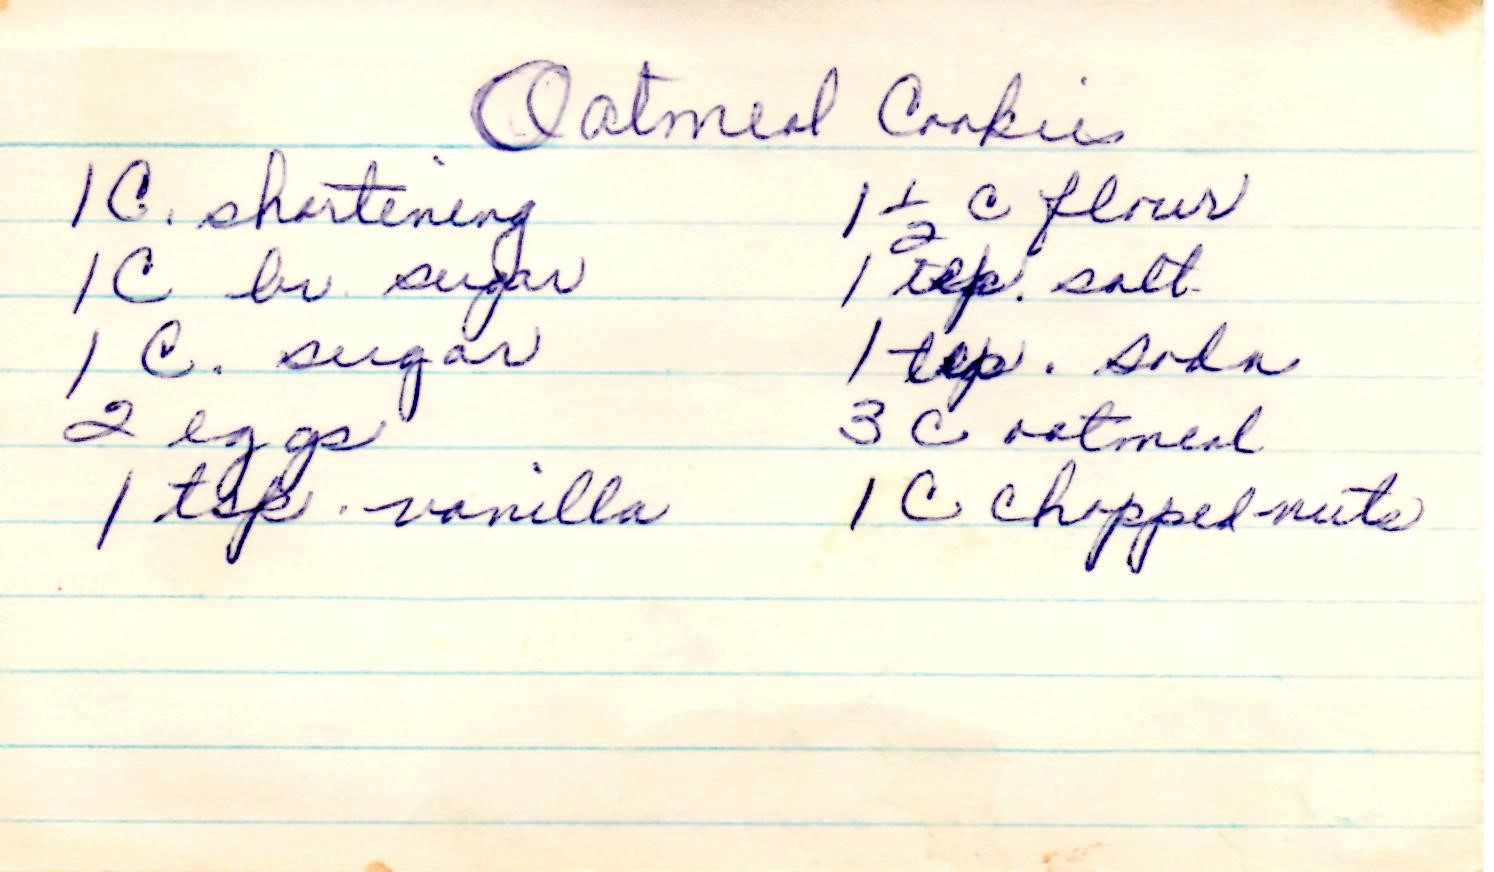 Oatmeal Cookies
1 C. shortening
1 C br. sugar
1 C. sugar
2 eggs
1 tsp. vanilla
1 1/2 C flour
1 tsp. salt
1 tsp. soda
3 C oatmeal
1 C chopped nuts